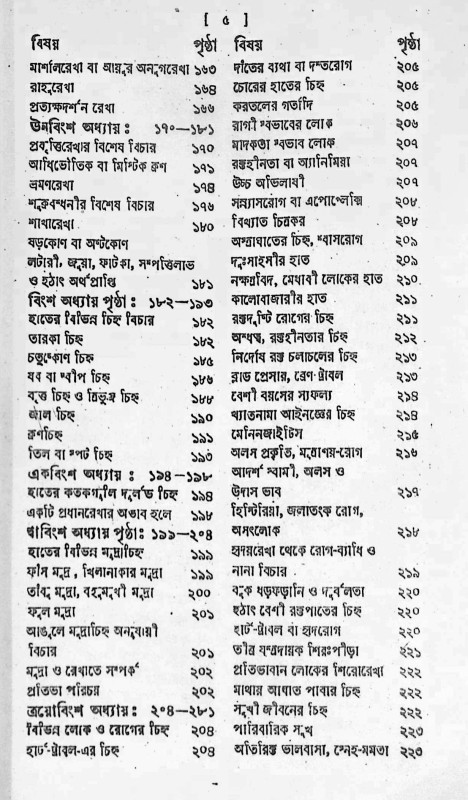 [ ৫ ]
বিষয় পৃষ্ঠা
মার্শালরেখা বা আয়ুর অনুগরেখা ১৬৩
রাহুরেখা ১৬৪
প্রত্যক্ষদর্শন রেখা ১৬৬
ঊনবিংশ অধ্যায় : ১৭০—১৮১
প্রবৃত্তিরেখার বিশেষ বিচার ১৭০
আধিভৌতিক বা মিস্টিক ক্রশ ১৭১
ভ্রমণরেখা ১৭৪
শুক্রবন্ধনীর বিশেষ বিচার ১৭৬
শাখারেখা ১৮০
ষড়কোণ বা অষ্টকোণ
লটারী, জুয়া, ফাটকা, সম্পত্তিলাভ
ও হঠাৎ অর্থপ্রাপ্তি ১৮১
বিংশ অধ্যায় পৃষ্ঠা : ১৮২—১৯৩
হাতের বিভিন্ন চিহ্ন বিচার ১৮২
তারকা চিহ্ন ১৮২
চতুষ্কোণ চিহ্ন ১৮৫
যব বা দ্বীপ চিহ্ন ১৮৬
বৃত্ত চিহ্ন ও ত্রিভুজ চিহ্ন ১৮৮
জাল চিহ্ন ১৯০
ক্রশচিহ্ন ১৯১
তিল বা স্পট চিহ্ন ১৯৩
একবিংশ অধ্যায় : ১৯৪—১৯৮
হাতের কতকগুলি দুর্লভ চিহ্ন ১৯৪
একটি প্রধানরেখার অভাব হলে ১৯৮
দ্বাবিংশ অধ্যায় পৃষ্ঠা: ১৯৯—২০৪
হাতের বিভিন্ন মুদ্রাচিহ্ন ১৯৯
ফাঁস মুদ্রা, খিলানাকার মুদ্রা ১৯৯
তাঁবু মুদ্রা, বহুমুখী মুদ্রা ২০০
ফুল মুদ্রা ২০১
আঙুলে মুদ্রাচিহ্ন অনুযায়ী
বিচার ২০১
মুদ্রা ও রেখাতে সম্পর্ক ২০২
প্রতিভা পরিচয় ২০২
ত্রয়োবিংশ অধ্যায় : ২০৪—২৮১
বিভিন্ন লোক ও রোগের চিহ্ন ২০৪
হার্ট-ট্রাবল-এর চিহ্ন ২০৪
বিষয় পৃষ্ঠা
দাঁতের ব্যথা বা দন্তরোগ ২০৫
চোরের হাতের চিহ্ন ২০৫
করতলের গর্তাদি ২০৫
রাগী স্বভাবের লোক ২০৬
মাদকতা স্বভাব লোক ২০৭
রক্তহীনতা বা অ্যানিমিয়া ২০৭
উচ্চ অভিলাষী ২০৭
সন্ন্যাসরোগ বা এপোপ্লেক্সি ২০৮
বিখ্যাত চিত্রকর ২০৮
অস্ত্রাঘাতের চিহ্ন, শ্বাসরোগ ২০৯
দুঃসাহসীর হাত ২০৯
নক্ষত্রবিদ, মেধাবী লোকের হাত ২১০
কালোবাজারীর হাত ২১১
রক্তদুষ্টি রোগের চিহ্ন ২১১
অন্ধত্ব, রক্তহীনতার চিহ্ন ২১২
নির্দোষ রক্ত চলাচলের চিহ্ন ২১৩
ব্লাড প্রেসার, ব্রেণ-ট্রাবল ২১৩
বেশী বয়সের সাফল্য ২১৪
খ্যাতনামা আইনজ্ঞের চিহ্ন ২১৪
মেনিনজাইটিস ২১৫
অলস প্রকৃতি, মূত্রাশয়-রোগ ২১৬
আদর্শ স্বামী, অলস ও
উদাস ভাব ২১৭
হিস্টিরিয়া, জলাতংক রোগ,
অসৎলোক ২১৮
হৃদয়রেখা থেকে রোগ-ব্যাধি ও
নানা বিচার ২১৯
বুক ধড়ফড়ানি ও দুর্বলতা ২২০
হঠাৎ বেশী রক্তপাতের চিহ্ন ২২০
হার্ট-ট্রাবল বা হৃদরোগ ২২০
তীব্র যন্ত্রণাদায়ক শিরঃপীড়া ২২১
প্রতিভাবান লোকের শিরোরেখা ২২২
মাথায় আঘাত পাবার চিহ্ন ২২২
সুখী জীবনের চিহ্ন ২২২
পারিবারিক সুখ ২২৩
অতিরিক্ত ভালবাসা, স্নেহ-মমতা ২২৩